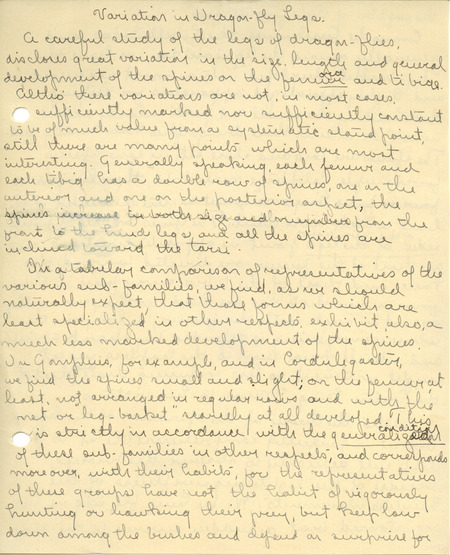 Variation in Dragon-fly Legs.
A careful study of the legs of dragon-flies,
discloses great variation in the size, length and general
development of the spines on the femora and tibiae.
Altho' these variations are not, in most cases,
sufficiently marked nor sufficiently constant
to be of much value from a systematic stand point,
still there are many points which are most
interesting. Generally speaking, each femur and
each tibia has a double row of spines, one on the
anterior and one on the posterior aspect, the
spines increase in both size and numbers from the
front to the hind legs, and all the spines are
inclined toward the tarsi.
In a tabular comparison of representatives of the
various sub-families, we find, as we should
naturally expect, that those forms which are
least specialized in other respects, exhibit, also, a
much less marked development of the spines.
In Gomphus, for example, and in Cordulegaster,
we find the spines small and slight; on the femur, at
least, not arranged in regular rows and with the
"net or leg-basket" scarcely at all developed. This
is strictly in accordance with the generalized condition
of these sub-families in other respects, and corresponds
moreover, with their habits, for the representatives
of these groups have not the habit of vigorously
hunting or hawking their prey, but keep low
down among the bushes and depend on surprise for